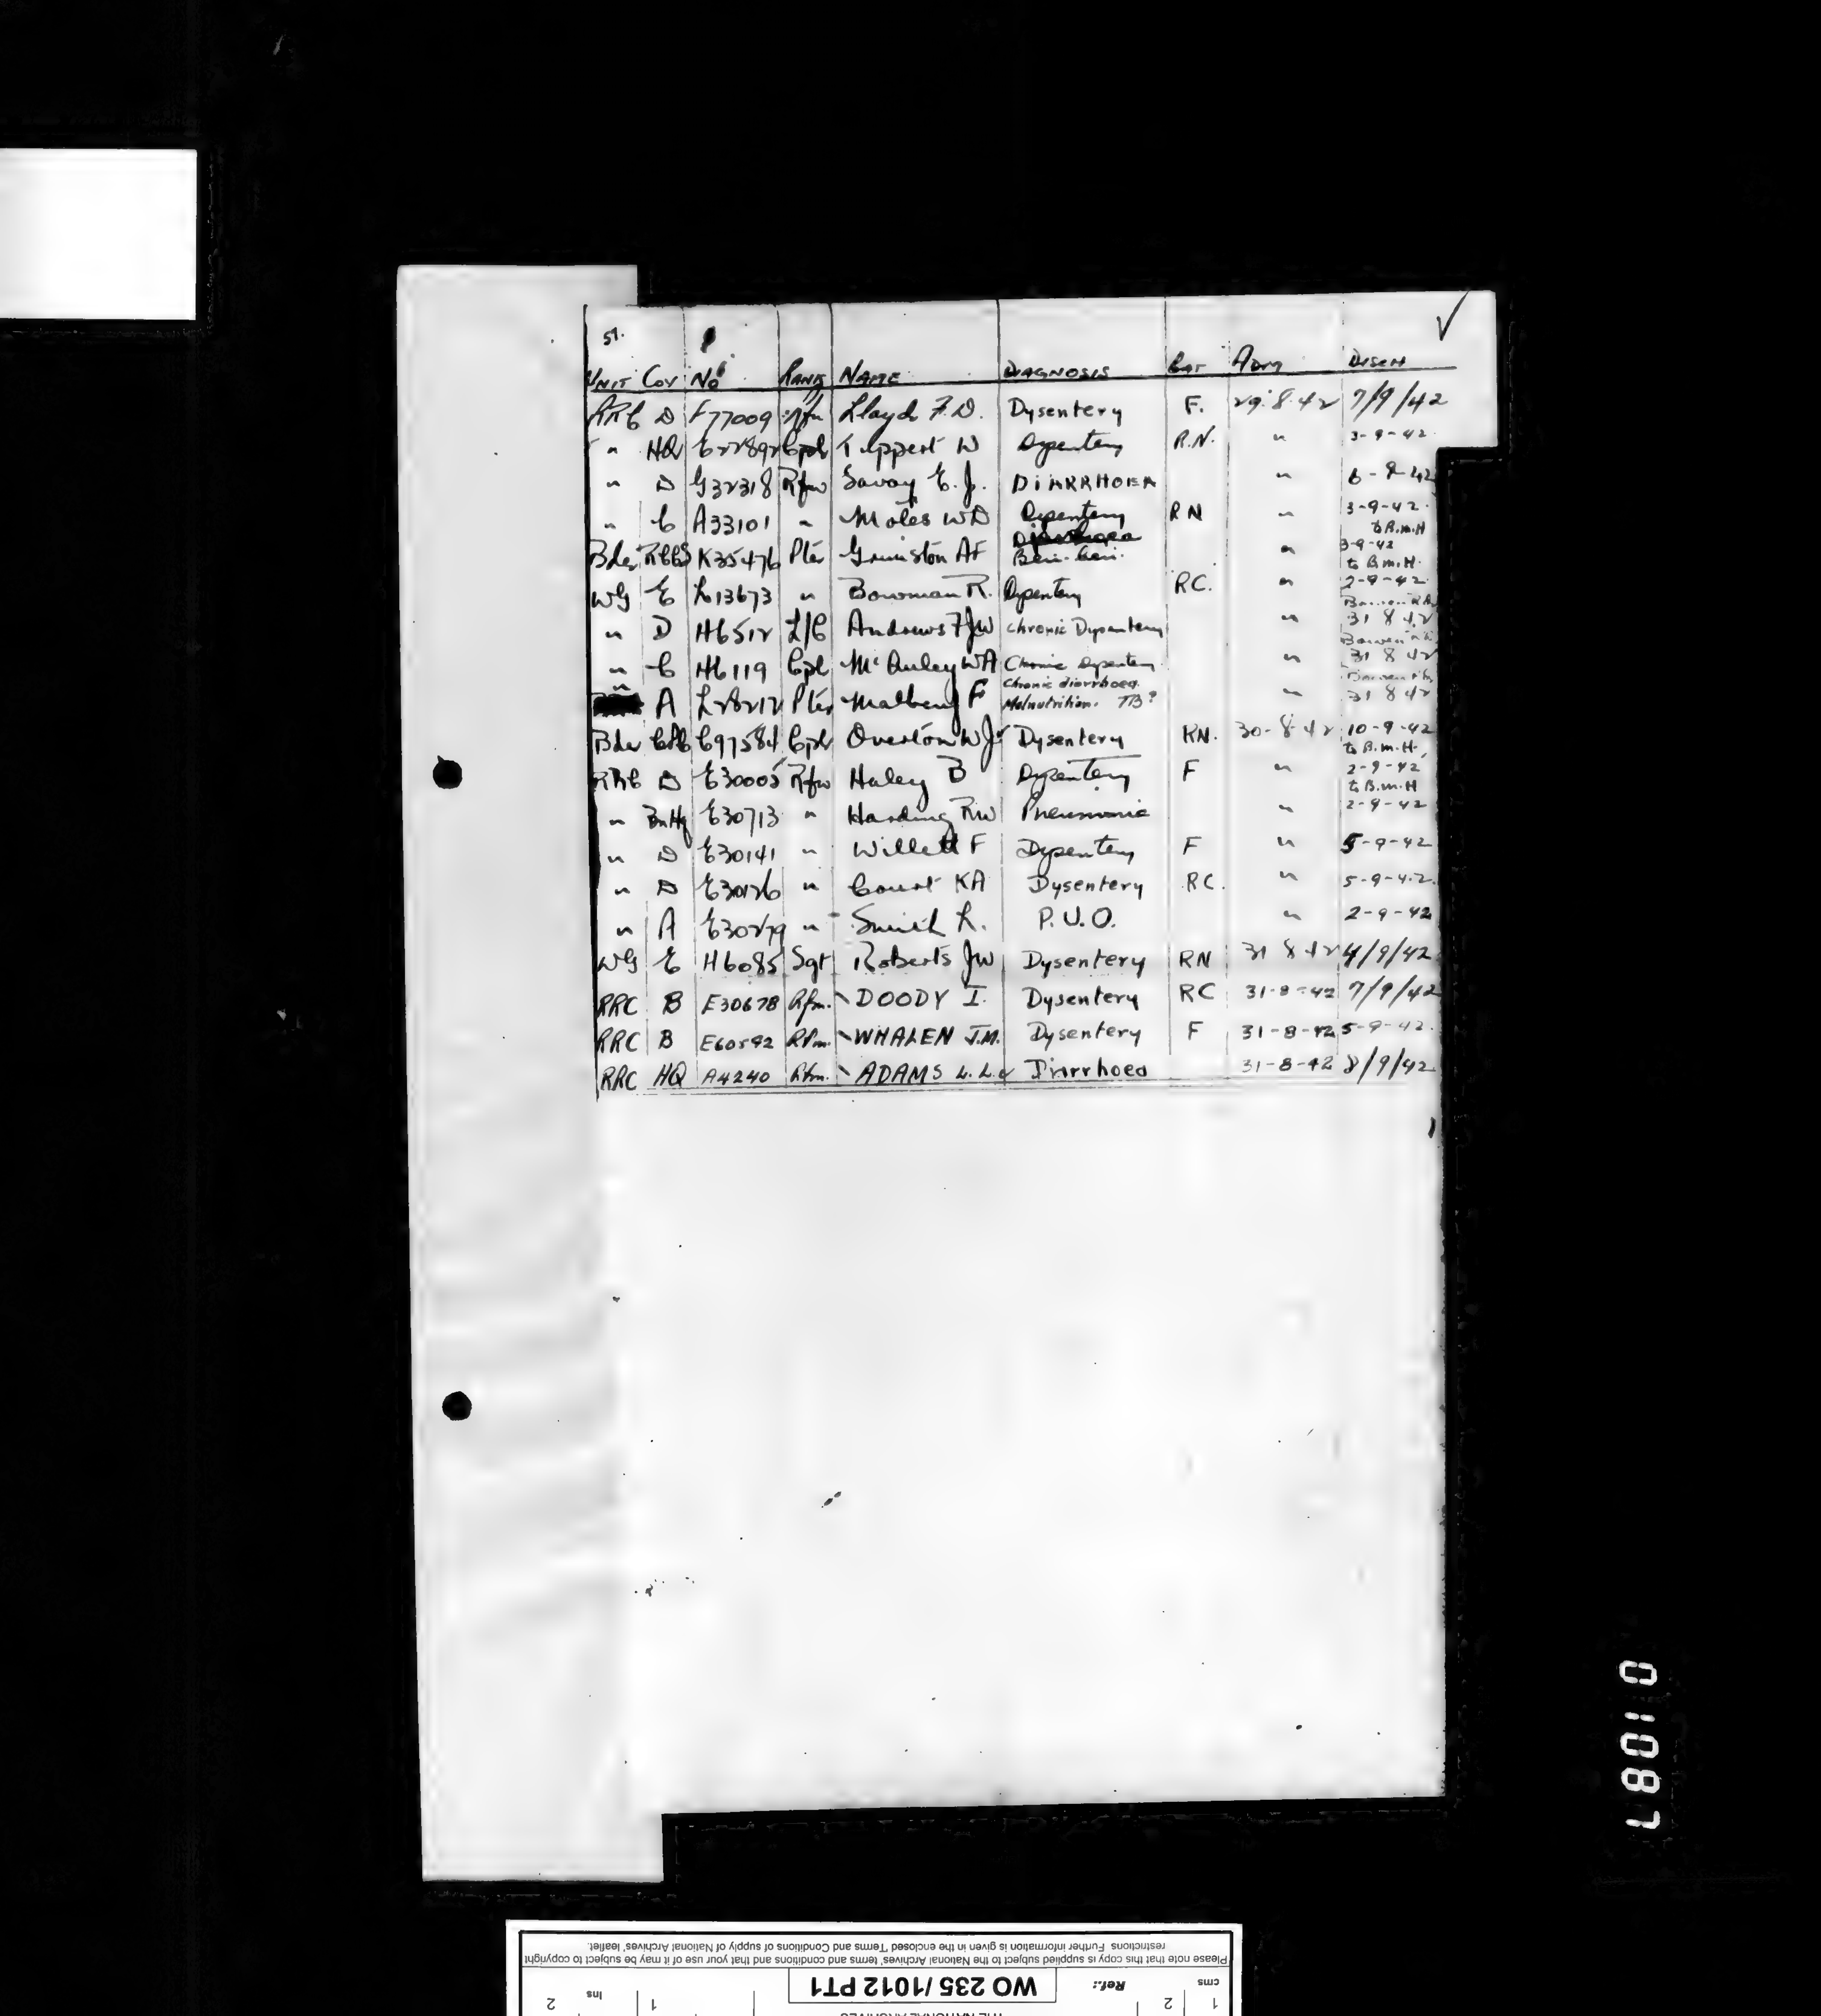 51.
UNIT COY No RANK NAME DIAGNOSIS CAT ADM DISCH
RRC D F77009 Rfn Lloyd F.D. Dysentery F. 29.8.42 7/9/42
" HQ E22892 Cpl W Dysentery R.N. " 3-9-42
" D G32318 Rfn Savoy E.J. DIARRHOEA " 6-9-42
" C A33101 " Moles WD Dysentery RN " 3-9-42 to B.M.H
Bde K35476 Pte Grimston AF Beri-beri. " 3-9-42 to B.M.H.
WG E L13673 " Bowman R. Dysentery RC. " 2-9-42
" D H6512 L/C Andrews FJW Chronic Dysentery " 31 8 42
" C H6119 Cpl McAuley WA Chronic Dysentery " 31 8 42
" A Pte F Chronic diarrhoea. Malnutrition. TB? " 31 8 42
Bde C97584 Cpl Overton WJ Dysentery RN. 30-8-42 10-9-42 to B.M.H.
RRC D E30005 Rfn Haley B Dysentery F " 2-9-42 to B.M.H
" BnHq E30713 " Harding RW Pneumonia " 2-9-42
" D E30141 " Willett F Dysentery F " 5-9-42
" D E30126 " Court KA Dysentery RC. " 5-9-42.
" A E30279 " Smith L. P.U.O. " 2-9-42
WG E H6085 Sgt Roberts JW Dysentery RN 31 8 42 4/9/42
RRC B E30678 Rfm. DOODY I. Dysentery RC 31-8-42 7/9/42
RRC B E60592 Rfm. WHALEN J.M. Dysentery F 31-8-42 5-9-42.
RRC HQ A4240 Rfm. ADAMS L.L. Diarrhoea 31-8-42 8/9/42
01087
Please note that this copy is supplied subject to the National Archives' terms and conditions and that your use of it may be subject to copyright
restrictions. Further information is given in the enclosed 'Terms and Conditions of supply of National Archives' leaflet.
cms 1 2 Ref.: WO 235/1012 PT1 1 Ins 2
THE NATIONAL ARCHIVES